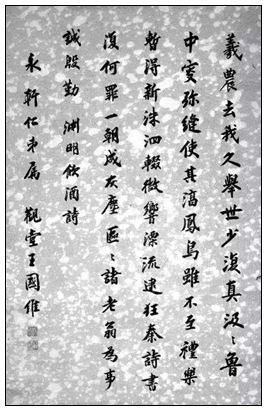 羲農去我久舉世少復真汲〻魯
中叟弥縫使其淳鳳鳥雖不至禮樂
暫得新洙泗輟微響漂流逮狂秦詩書
復何罪一朝成灰塵區〻諸老翁為事
誠殷勤 渊明飲酒詩
永軒仁弟属 觀堂王國維